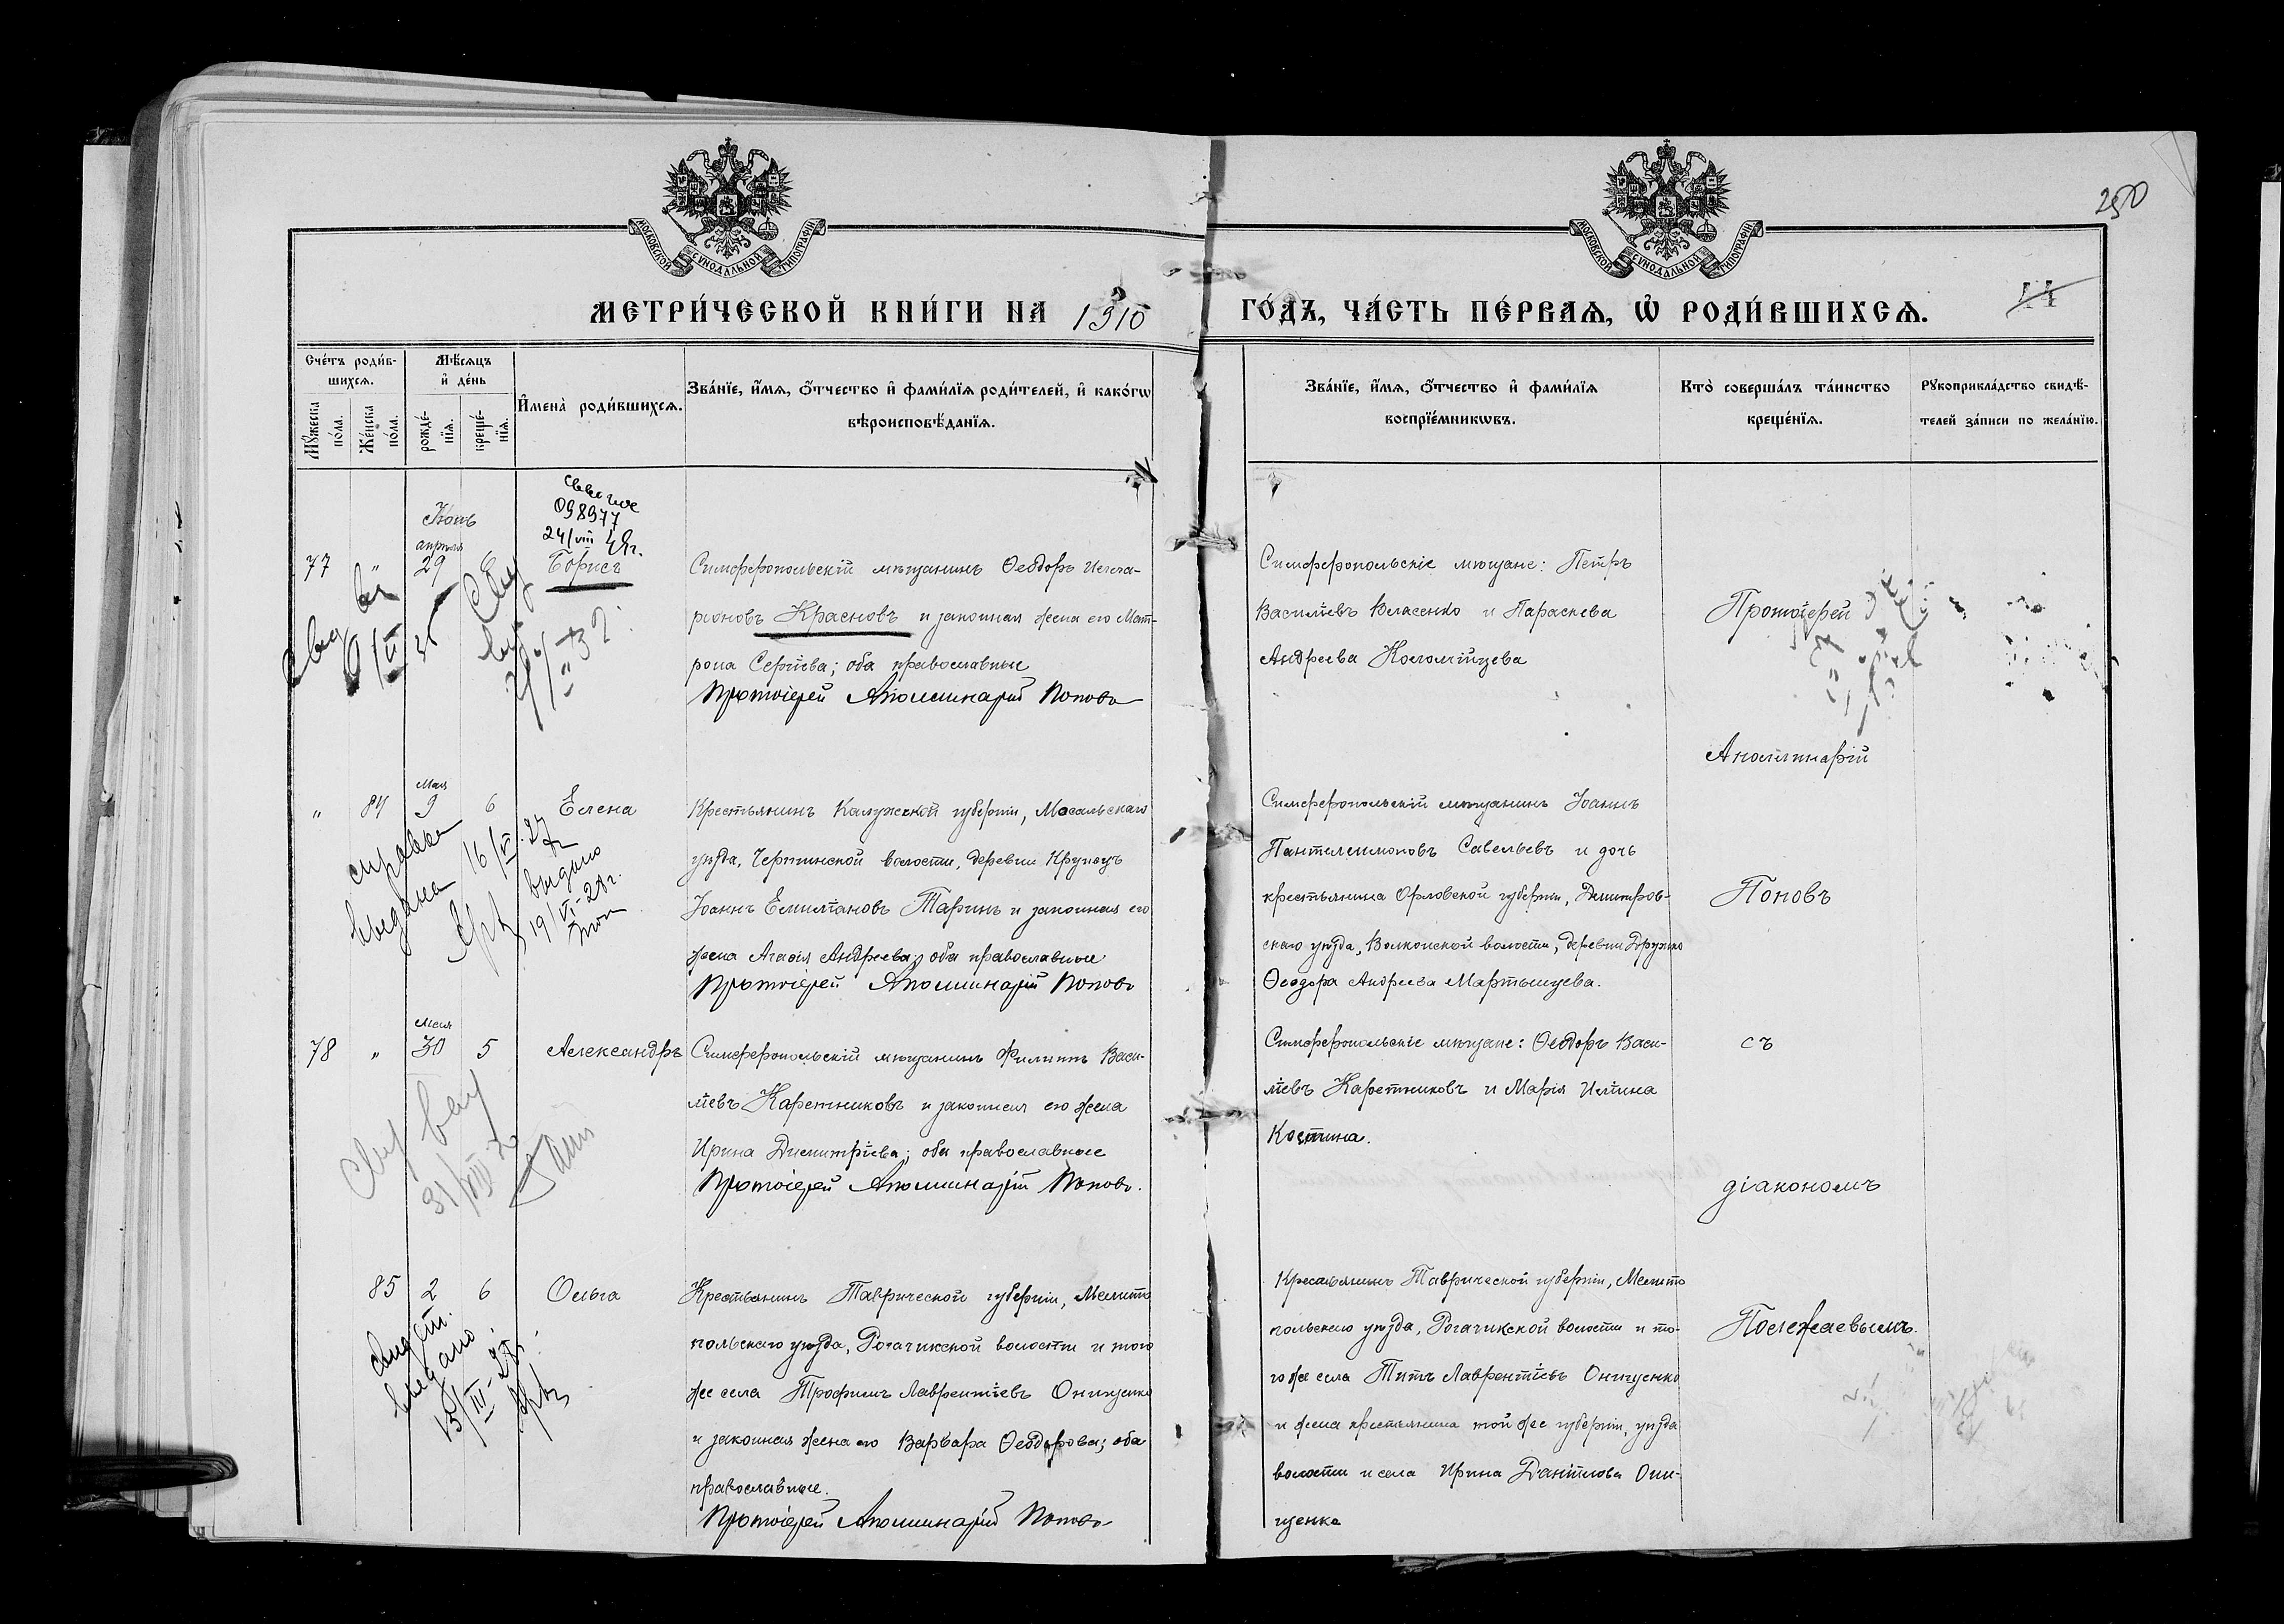 МОСКОВСКОЙ СѴНОДАЛЬНОЙ ТИПОГРАФІИ
МОСКОВСКОЙ СѴНОДАЛЬНОЙ ТИПОГРАФІИ
250
МЕТРИ́ЧЕСКОЙ КНИ́ГИ НА 1910
ГО́ДЪ, ЧА́СТЬ ПЕ́РВАѦ, Ѡ҆ РОДИ́ВШИХСѦ.
Сче́тъ роди́в-
шихсѧ.
Мꙋ́жеска
по́ла.
Же́нска
по́ла.
Мѣ́сѧцъ
и҆ де́нь
рожде́-
нїѧ.
креще́-
нїѧ.
И҆мена̀ роди́вшихсѧ.
Зва́нїе, и҆́мѧ, ѻ҆́тчество и҆ фами́лїѧ роди́телей, и҆ како́гѡ
вѣроисповѣ́данїѧ.
Зва́нїе, и҆́мѧ, ѻ҆́тчество и҆ фами́лїѧ
воспрїе́мникѡвъ.
Кто̀ соверша́лъ та́инство
креще́нїѧ.
Рꙋкоприкла́дство свидѣ́-
телей за́писи по жела́нїю.
098977
24/VIII
апрѣля
77 " 29 Борисъ
Симферопольскій мѣщанинъ Ѳеодоръ Илла-
ріоновъ Красновъ и законная жена его Мат-
рона Сергіева; оба православные
Протоіерей Аполлинарій Поповъ
Симферопольскіе мѣщане: Петръ
Василіевъ Власенко и Параскева
Андреева Коломійцева
Протоіерей
Аполлинарій
Мая
" 84 9 6 Елена
справка
выдана
16/VI.27
выдано
19/VI-28г.
Крестьянинъ Калужской губерніи, Мосальскаго
уѣзда, Чертинской волости, деревни Крупецъ
Іоаннъ Емиліановъ Таринъ и законная его
жена Агаѳія Андреева; оба православные
Протоіерей Аполлинарій Поповъ
Симферопольскій мѣщанинъ Іоаннъ
Пантелеимоновъ Савельевъ и дочь
крестьянина Орловской губерніи, Дмитров-
скаго уѣзда, Волконской волости, деревни Дружно
Ѳеодора Андреева Мартынцева.
Поповъ
Мая
78 " 30 5 Александръ
Симферопольскій мѣщанинъ Филиппъ Васи-
ліевъ Каретниковъ и законная его жена
Ирина Димитріева; оба православные
Протоіерей Аполлинарій Поповъ.
Симферопольскіе мѣщане: Ѳеодоръ Васи-
ліевъ Каретниковъ и Марія Иліина
Костина.
съ
діакономъ
85 2 6 Ольга
выдано
Крестьянинъ Таврической губерніи, Мелито
польскаго уѣзда, Рогачикской волости и того
же села Трофимъ Лаврентіевъ Онищенко
и законная жена его Варвара Ѳеодорова; оба
православные.
Протоіерей Аполлинарій Поповъ
Крестьянинъ Таврической губерніи, Мелито
польскаго уѣзда, Рогачикской волости и то-
го же села Титъ Лаврентіевъ Онищенко
и жена крестьянина той же губерніи, уѣзда
волости и села Ирина Даніилова Они-
щенко
Полежаевымъ.